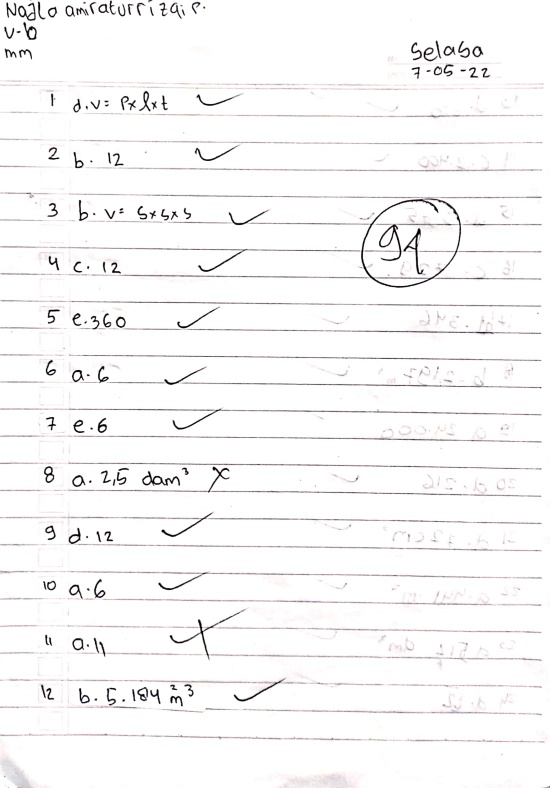 Najla amiraturrizqi P.
V-b
mm
Selasa
7-05-22
1 d. v = P x l x t
2 b. 12
3 b. v = s x s x s
94
4 c. 12
5 e. 360
6 a. 6
7 e. 6
8 a. 2,5 dam³
9 d. 12
10 a. 6
11 a. 11
12 b. 5.184 m³